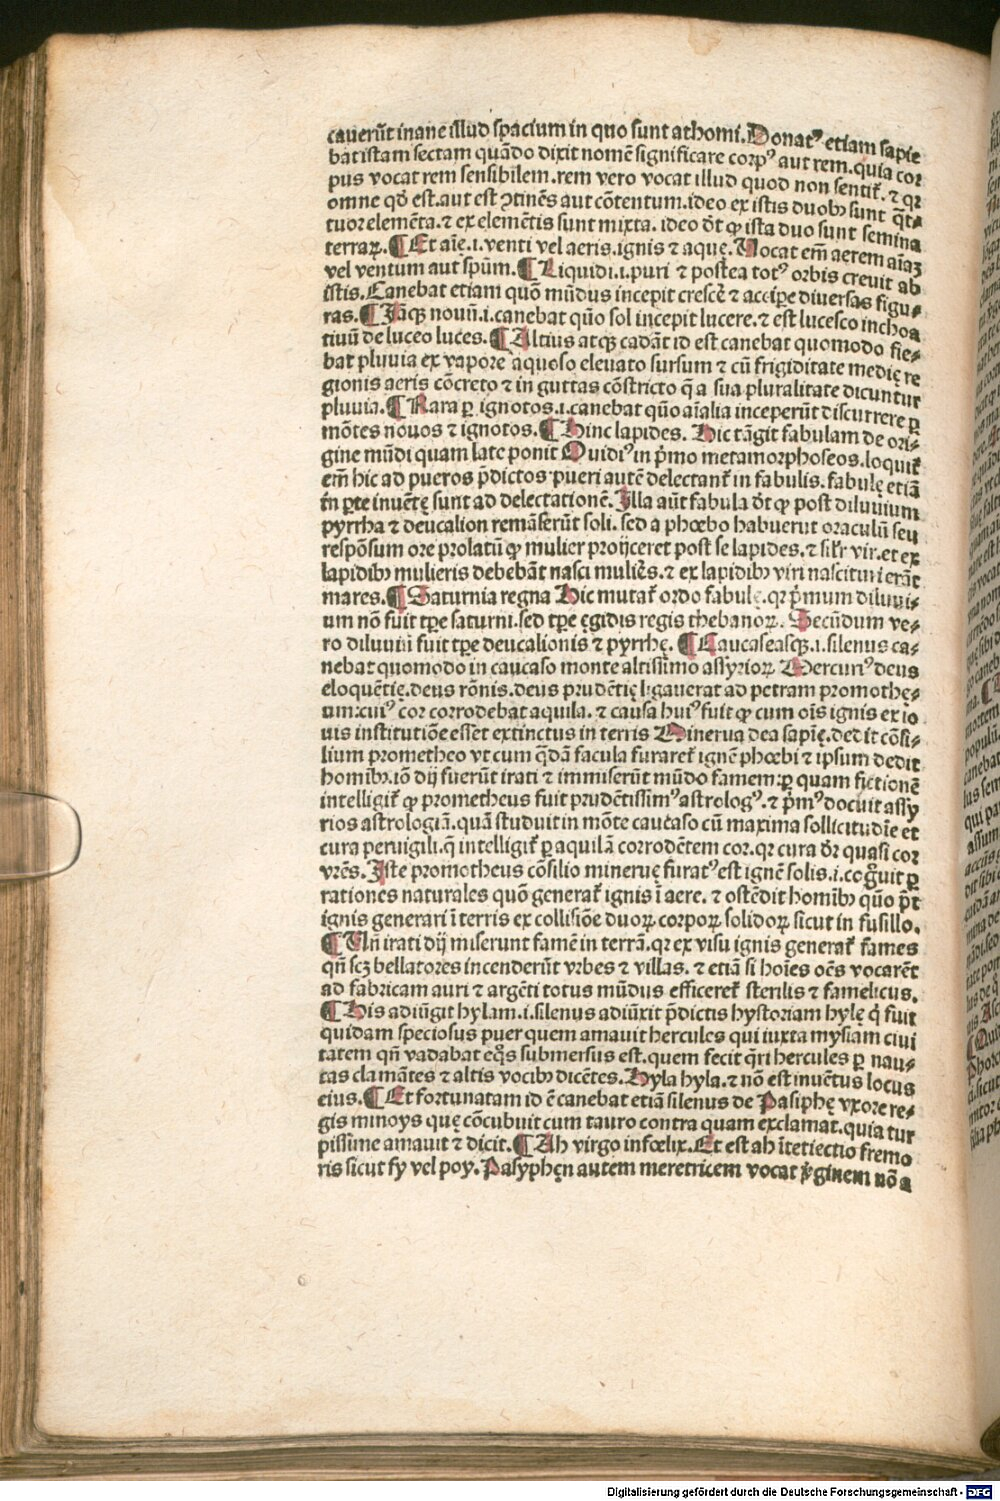 cauerūt inane illud spacium in quo sunt athomi. Donatꝰ etiam sapie
bat istam sectam quādo dixit nomē significare corpꝰ aut rem. quia cor
pus vocat rem sensibilem. rem vero vocat illud quod non sentit᷑. ⁊ qꝛ
omne qd̄ est. aut est ꝯtinēs aut cōtentum. ideo ex istis duobꝫ sunt q̄t⸗
tuor elemēta. ⁊ ex elemētis sunt mixta. ideo d̄t ꝙ ista duo sunt semina
terraꝝ. ¶ Et aīe .i. venti vel aeris. ignis ⁊ aquę. Vocat em̄ aerem aīaꝫ
vel ventum aut spūm. ¶ Liquidi .i. puri ⁊ postea totꝰ orbis creuit ab
istis. Canebat etiam quō mūdus incepit crescē ⁊ accipe diuersas figu⸗
ras. ¶ Jāqꝫ nouū .i. canebat quō sol incepit lucere. ⁊ est lucesco inchoa
tiuū de luceo luces. ¶ Altius atqꝫ cadāt id est canebat quomodo fie⸗
bat pluuia ex vapore aquoso eleuato sursum ⁊ cū frigiditate medię re
gionis aeris cōcreto ⁊ in guttas cōstricto q̄ a sua pluralitate dicuntur
pluuia. ¶ Rara ꝑ ignotos .i. canebat quō aīalia inceperūt discurrere ꝑ
mōtes nouos ⁊ ignotos. ¶ Hinc lapides. Hic tāgit fabulam de ori⸗
gine mūdi quam late ponit Ouidiꝰ in p̄mo metamorphoseos. loquit᷑
em̄ hic ad pueros p̄dictos pueri autē delectant᷑ in fabulis. fabulę etiā
in ꝑte inuētę sunt ad delectationē. Illa aūt fabula d̄t ꝙ post diluuium
pyrrha ⁊ deucalion remāserūt soli. sed a phœbo habuerut oraculū seu
respōsum ore prolatū ꝙ mulier proijceret post se lapides. ⁊ sil̄r vir. et ex
lapidibꝫ mulieris debebāt nasci mulieȓs. ⁊ ex lapidibꝫ viri nascituri erāt
mares. ¶ Saturnia regna Hic mutat᷑ ordo fabulę. qꝛ p̄mum diluui⸗
um nō fuit tꝑe saturni. sed tꝑe ęgidis regis thebanoꝝ. Secūdum ve⸗
ro diluuiū fuit tꝑe deucalionis ⁊ pyrrhę. ¶ Caucaseasqꝫ .i. silenus ca⸗
nebat quomodo in caucaso monte altissimo assyrioꝝ Mercuriꝰ deus
eloquētię. deus rōnis. deus prudētię ligauerat ad petram promothę⸗
um: cuiꝰ cor corrodebat aquila. ⁊ causa huiꝰ fuit ꝙ cum oīs ignis ex io
uis institutiōe esset extinctus in terris Minerua dea sapīę. dedit cōsi⸗
lium prometheo vt cum q̄dā facula furaret᷑ ignē phœbi ⁊ ipsum dedit
homībꝫ. iō dij fuerūt irati ⁊ immiserūt mūdo famem: ꝑ quam fictionē
intelligit᷑ ꝙ prometheus fuit prudētissimꝰ astrologꝰ. ⁊ p̄mꝰ docuit assy
rios astrologiā. quā studuit in mōte caucaso cū maxima sollicitudīe et
cura peruigili. q̄ intelligit᷑ ꝑ aquilā corrodētem cor. qꝛ cura d̄r quasi cor
vrēs. Iste prometheus cōsilio mineruę furatꝰ est ignē solis .i. cognouit ꝑ
rationes naturales quō generat᷑ ignis ī aere. ⁊ ostēdit homībꝫ quō p̄t
ignis generari ī terris ex collisiōe duoꝝ corpoꝝ solidoꝝ sicut in fusillo.
¶ Vn̄ irati dij miserunt famē in terrā. qꝛ ex visu ignis generat᷑ fames
qn̄ scꝫ bellatores incenderūt vrbes ⁊ villas. ⁊ etiā si hoīes oēs vocarēt
ad fabricam auri ⁊ argēti totus mūdus efficeret᷑ sterilis ⁊ famelicus.
¶ His adiūgit hylam .i. silenus adiūxit p̄dictis hystoriam hylę q̇ fuit
quidam speciosus puer quem amauit hercules qui iuxta mysiam ciui
tatem qn̄ vadabat eq̊s submersus est. quem fecit q̄ri hercules ꝑ nau⸗
tas clamātes ⁊ altis vocibꝫ dicētes. Hyla hyla. ⁊ nō est inuētus locus
eius. ¶ Et fortunatam id ē canebat etiā silenus de Pasiphę vxore re⸗
gis minoys quę cōcubuit cum tauro contra quam exclamat. quia tur
pissime amauit ⁊ dicit. ¶ Ah virgo infœlix. Et est ah īteriectio fremo
ris sicut fy vel poy. Pasyphęn autem meretricem vocat v̄ginem nō a
Digitalisierung gefördert durch die Deutsche Forschungsgemeinschaft - DFG